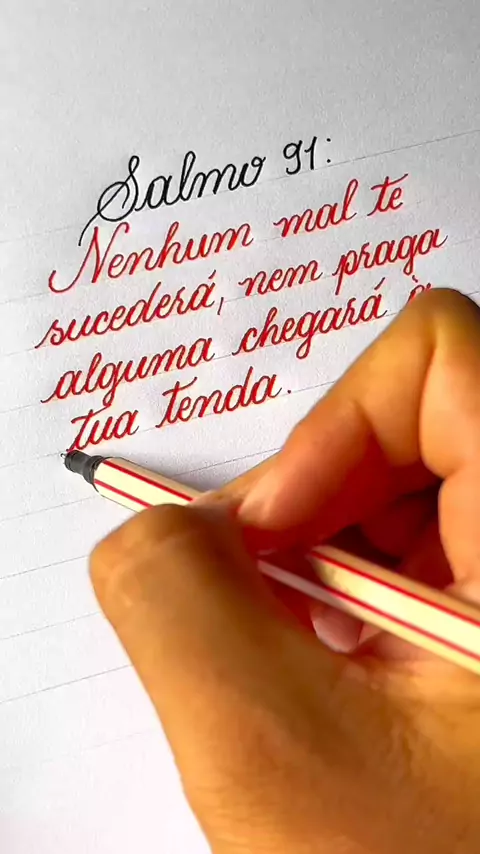 Salmo 91:
Nenhum mal te
sucederá, nem praga
alguma chegará à
tua tenda.